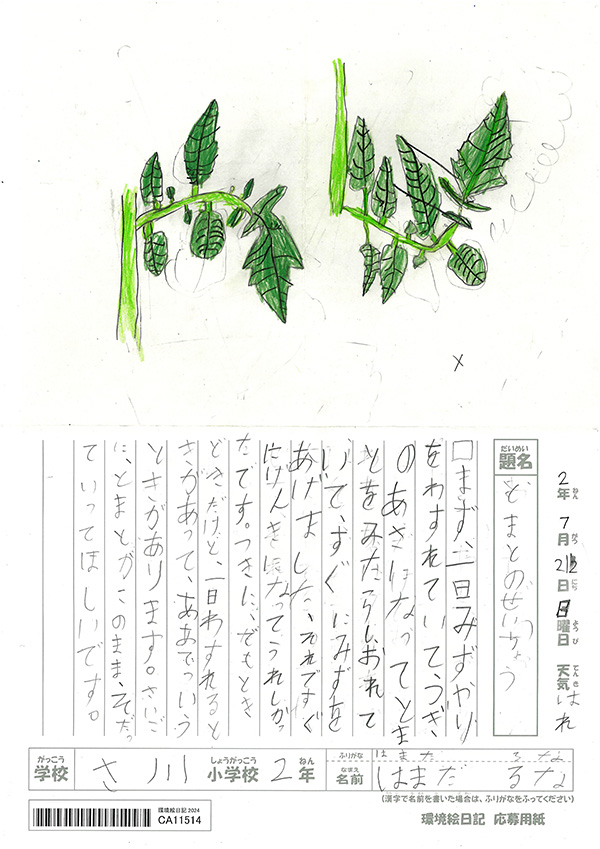 2年7月21日日曜日 天気はれ
ねん がつ にち ようび てんき
だいめい
題名 とまとのせいちょう
まず、一日みずやり
をわすれていて、つぎ
のあさになってとま
とをみたらしおれて
いて、すぐにみずを
あげました。それですぐ
にげんきになってうれしかっ
たです。つぎに、でもとき
どきだけど、一日わすれると
きがあって、ああでっいう
ときがあります。さいご
に、とまとがこのまま、そだっ
ていってほしいです。
がっこう しょうがっこう ねん ふりがな はまだ るな
学校 さ川 小学校 2年 なまえ 名前 はまだ るな
(漢字で名前を書いた場合は、ふりがなをふってください)
環境絵日記 2024
CA11514
環境絵日記 応募用紙